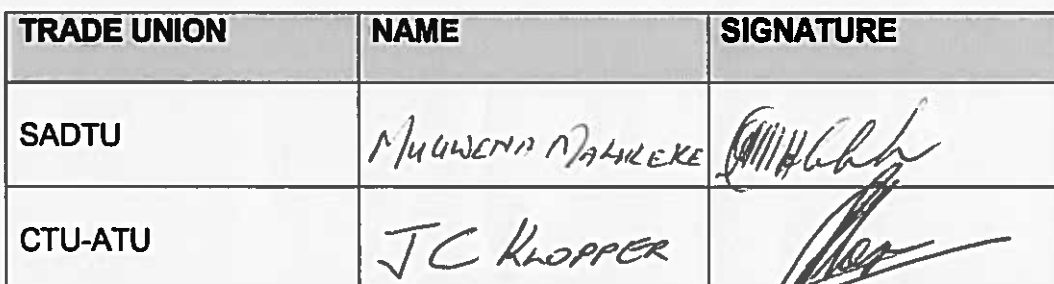 TRADE UNION NAME SIGNATURE
SADTU MUGWENA MALULEKE
CTU-ATU JC KLOPPER